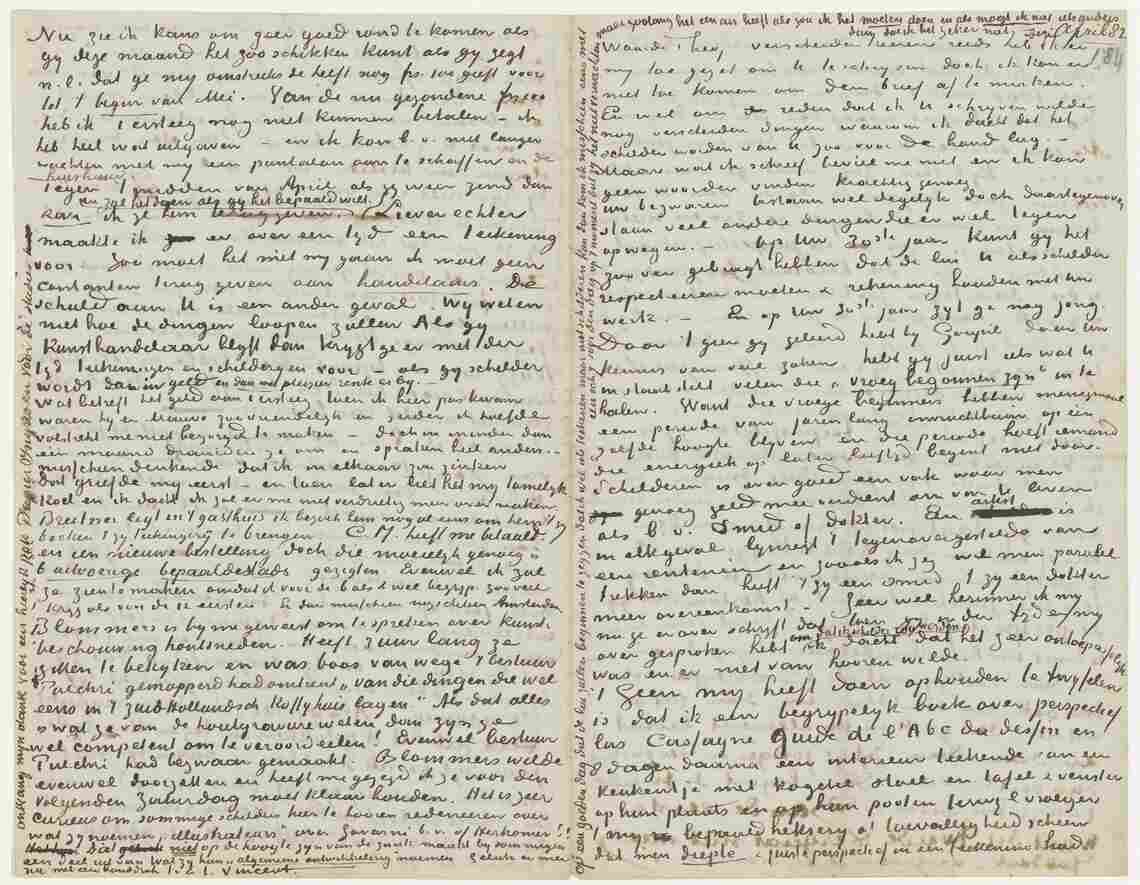 Nu zie ik kans om zeer goed rond te komen als
gy deze maand het zoo schikken kunt als gy zegt
n.l. dat ge my omstreeks de helft nog frs. 100 geeft voor
tot 't begin van Mei. Van de nu gezondene
heb ik Tersteeg nog niet kunnen betalen – ik
heb heel wat uitgaven – en ik kon b.v. niet langer
wachten met my een pantalon aan te schaffen en de
huishuur.
Tegen 't midden van April als gy weer zend dan
zal het doen als gy het bepaald wilt.
kan ik ze hem teruggeven. Liever echter
maakte ik er over een tyd een teekening
voor. Zoo moet het met my gaan ik moet geen
contanten terug geven aan handelaars. Die
schuld aan U is een ander geval. Wy weten
niet hoe de dingen loopen zullen Als gy
Kunsthandelaar blyft dan krygt ge er met der
tyd teekeningen en schilderyen voor – als gy schilder
wordt dan in geld en dan met pleizier rente er by. –
Wat betreft het geld van Tersteeg, toen ik hier pas kwam
waren hy en Mauve zoo vriendelyk en zeiden ik hoefde
volstrekt me niet bezorgd te maken – doch in minder dan
een maand draaiden ze om en spraken heel anders..
misschien denkende dat ik in elkaar zou zinken
Dat griefde my eerst – en toen later liet het my tamelyk
koel en ik dacht ik zal er me niet verdrietig meer over maken.
Breitner legt in 't gasthuis ik bezoek hem nog al eens om hem
boeken of zyn teekengerij te brengen. C.M. heeft me betaald
en een nieuwe bestelling doch die moeielyk genoeg is
6 uitvoerige bepaalde stads gezigten. Evenwel ik zal
ze zien te maken omdat ik voor de 6 als ik wel begryp zooveel
kryg als van de 12 eersten. En dan misschien nog schetsen Amsterdam
Blommers is by me geweest om te spreken over kunst
beschouwing houtsneden. Heeft 2 uur lang ze
zitten te bekyken en was boos van wege 't bestuur
Pulchri gemopperd had omtrent „van die dingen die wel
eens in 't Zuid Hollandsch koffyhuis lagen". Als dat alles
is wat ze van de houtgravure weten dan zyn ze
wel competent om te veroordeelen! Evenwel bestuur
Pulchri had bezwaar gemaakt. Blommers wilde
evenwel doorzetten en heeft me gezegd ik ze voor den
volgenden Zaturdag moet klaar houden. Het is zeer
curieus om sommige schilders hier te hooren redeneeren over
wat zy noemen „illustrateurs" over Gavarni b.v. of Herkomer!!
Dat niet op de hoogte zyn van de zaak maakt by sommigen
een deel uit van wat zy hun „algemeene ontwikkeling" noemen
nu met een handdruk t.à t. Vincent
ontvang myn dank voor een en ander
maar zoolang het een air heeft alsof ik het moeten doen en als mogt ik niet iets anders
dan doe ik het zeker niet
April 82
184
Waarde Theo, verscheiden keeren reeds heb ik er
my toe gezet om U te schryven doch ik kon er
niet toe komen om den brief af te maken.
En wel om reden dat ik U schryven wilde
nog verscheiden dingen waarom ik dacht dat het
schilder worden van U zoo voor de hand lag.
Maar wat ik schreef beviel me niet en ik kon
geen woorden vinden krachtig genoeg
Uw bezwaren bestaan wel degelyk doch daartegenover
staan veel andere dingen die er wel tegen
opwegen. – Op Uw 30ste jaar kunt gy het
zoo ver gebragt hebben dat de lui U als schilder
respecteeren moeten & rekening houden met Uw
werk. – En op Uw 30ste jaar zyt ge nog jong.
Door 't geen gy geleerd hebt by Goupil door Uw
kennis van veel zaken hebt gy juist iets wat U
in staat stelt velen die „vroeg begonnen zyn" in te
halen. Want die vroege beginners hebben menigmaal
een periode van jaren lang onvruchtbaar op een
zelfde hoogte blyven en die periode heeft iemand
die energiek op later leeftyd begint niet door.
Schilderen is even goed een vak waar men
genoeg geld mee verdient om van te leven
als b.v. Smid of dokter. Een artist is
in elk geval lynregt 't tegenovergestelde van
een rentenier en zooals ik zeg wil men parallel
trekken dan heeft 't zy een smid 't zy een dokter
meer overeenkomst. – Zeer wel herinner ik my
nu ge er over schryft dat toen ge er der tyd my
over gesproken hebt om schilder te worden
ik dacht dat het zeer ontoepasselyk
was en er niet van hooren wilde.
't Geen my heeft doen ophouden te twyfelen
is dat ik een begrypelyk boek over perspectief
las Cassagne Guide de l'Abc du dessin en
8 dagen daarna een interieur teekende van een
keukentje met kagchel stoel en tafel & venster
op hun plaats en op hun pooten terwyl vroeger
't my bepaald heksery of toevalligheid scheen
dat men diepte & juiste perspectief in een teekening had.
op een goeden dag dat de lui zullen beginnen te zeggen dat ik wel kan teekenen maar niet schilderen